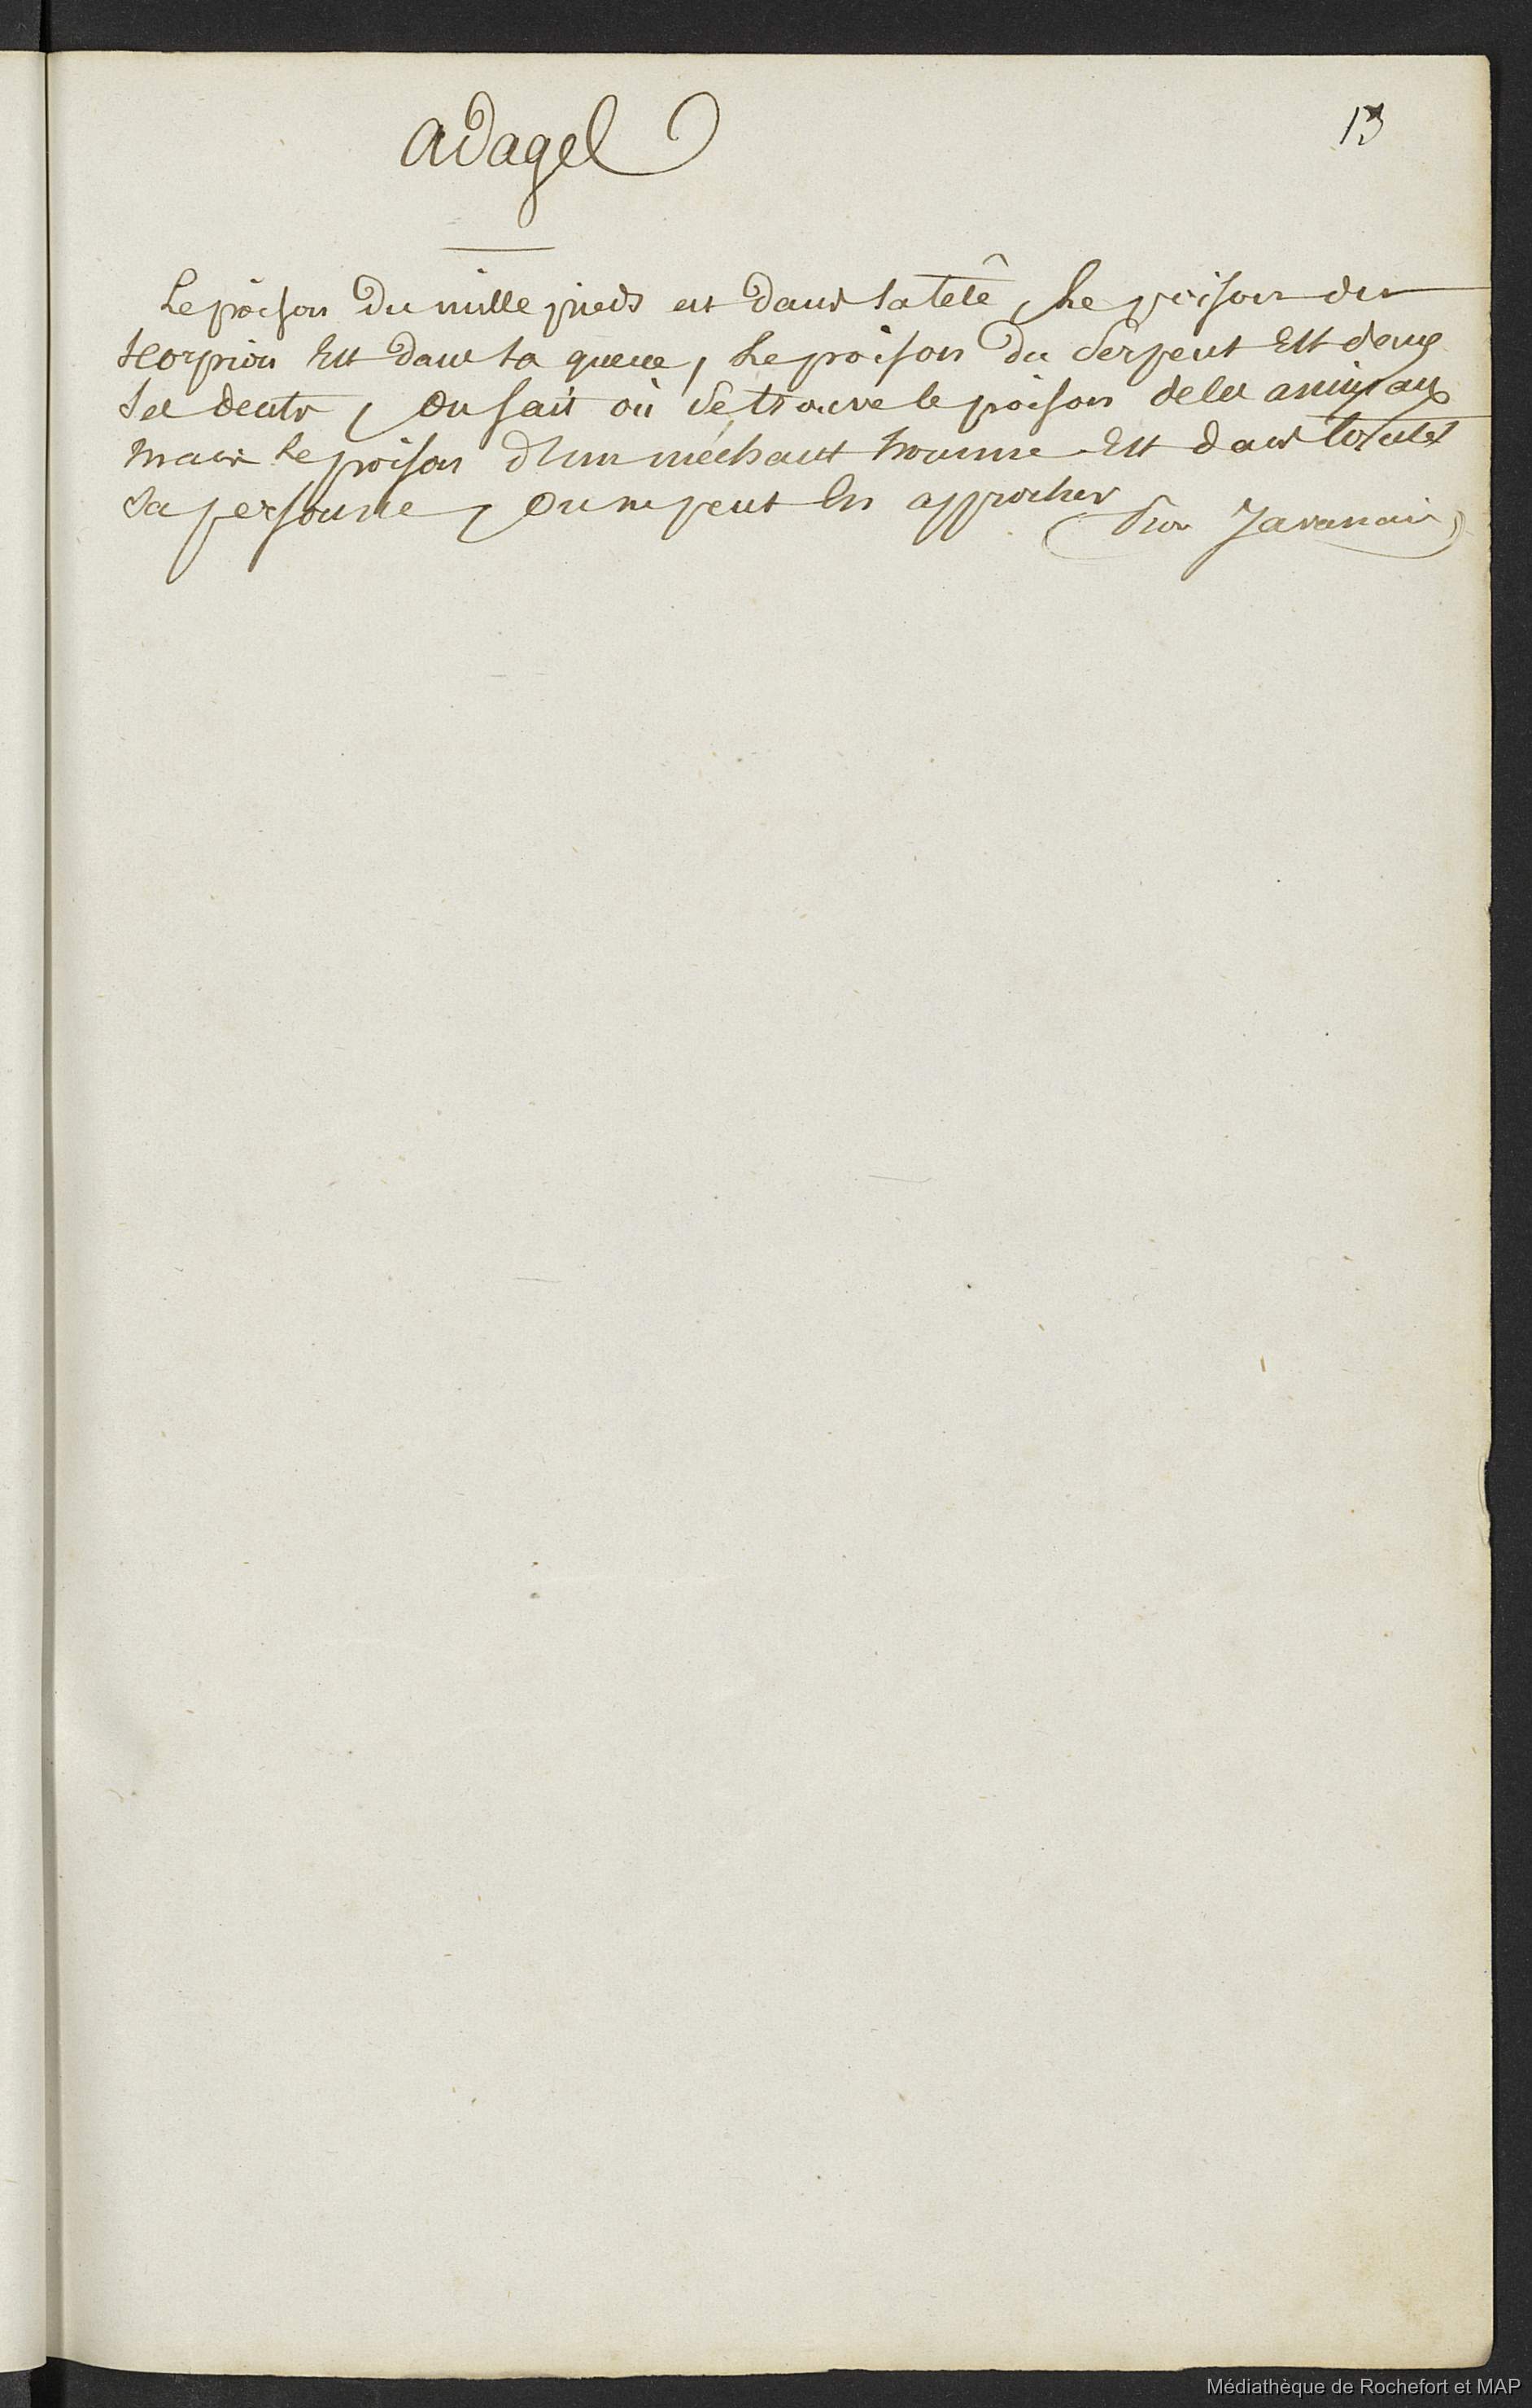 Adages
13
Le poison du mille pieds est dans sa tetê, Le poison du
scorpion Est dans sa queue, Le poison du Serpent Est dans
Ses dents, On sait où se trouve le poison de ces animaux
mais le poison d'un méchant homme Est dans toutes
Sa personne, On ne peut En approcher
(Prov Javanais)
Médiathèque de Rochefort et MAP